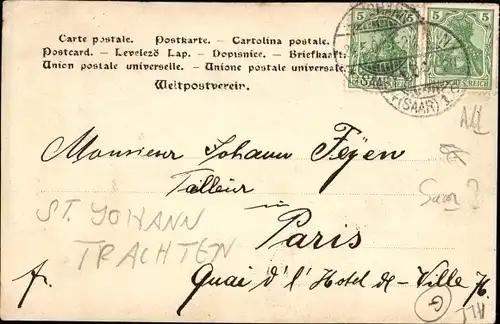 Carte postale. — Postkarte. — Cartolina postale.
Postcard. — Levelező Lap. — Dopisnice. — Briefkaart.
Union postale universelle. — Unione postale universale.
Weltpostverein.
5 5 5
REICH
(SAAR)
(SAAR) 1
Monsieur Johann Feyen
Tailleur
in
Paris
Quai d'l'Hotel de-Ville
fr.
ST. JOHANN
TRACHTEN
Saar?
G